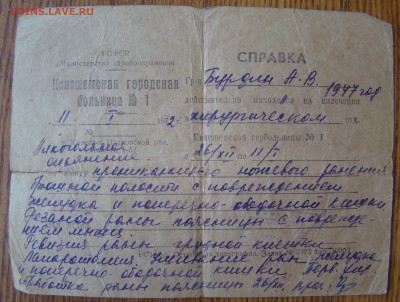 COINS.LAVE.RU
РСФСР
Министерство Здравоохранения
Кинешемская городская
больница № 1
11 I 1972
№
СПРАВКА
Гр. Бурдин А.В. 1947 год
действительно находился на излечении
хирургическом отд.
Кинешемской горбольницы № 1
26/XII по 11/I
Алкогольное
опьянение
проникающего ножевого ранения
брюшной полости с повреждением
желудка и поперечно-ободочной кишки
Резаной раны поясницы с поврежде-
нием мышц.
Ревизия раны грудной клетки
Лапаротомия. Ушивание ран желудка
и поперечно ободочной кишки. Перв. хир.
обработка раны поясницы 26/XII